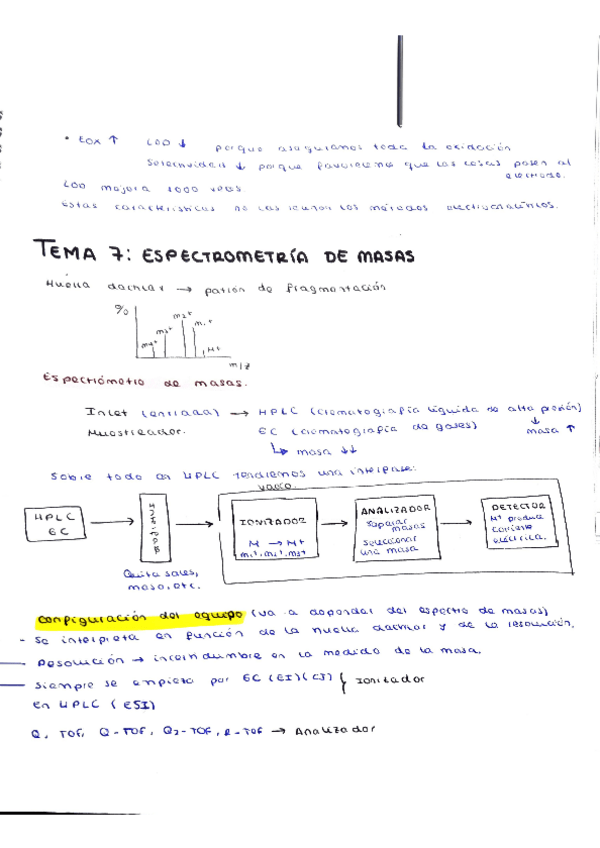 • EOX ↑ LOD ↓ porque aseguramos toda la oxidación
Selectividad ↓ porque favorecemos que las cosas pasen al electrodo.
LOD mejora 1000 veces
Estas características no las tienen los métodos electroanalíticos.
TEMA 7: ESPECTROMETRÍA DE MASAS
Huella dactilar → patrón de fragmentación
%
m2+
m1+
m3+
m4+
M+
m/z
Espectrómetro de masas.
Inlet (entrada) → HPLC (cromatografía líquida de alta presión)
Muestreador. GC (cromatografía de gases) masa ↑
↳ masa ↓↓
Sobre todo en HPLC tendremos una interfase:
vacío
HPLC
GC
INTERFASE
IONIZADOR
M → M+
m1+, m2+, m3+
ANALIZADOR
Separar masas
Seleccionar una masa
DETECTOR
M+ produce corriente eléctrica.
Quita sales,
configuración del equipo (va a depender del espectro de masas)
- Se interpreta en función de la huella dactilar y de la resolución.
Resolución → incertidumbre en la medida de la masa.
Siempre se empieza por GC (EI)(CI) } Ionizador
en HPLC (ESI)
Q, TOF, Q-TOF, Q2-TOF, → Analizador